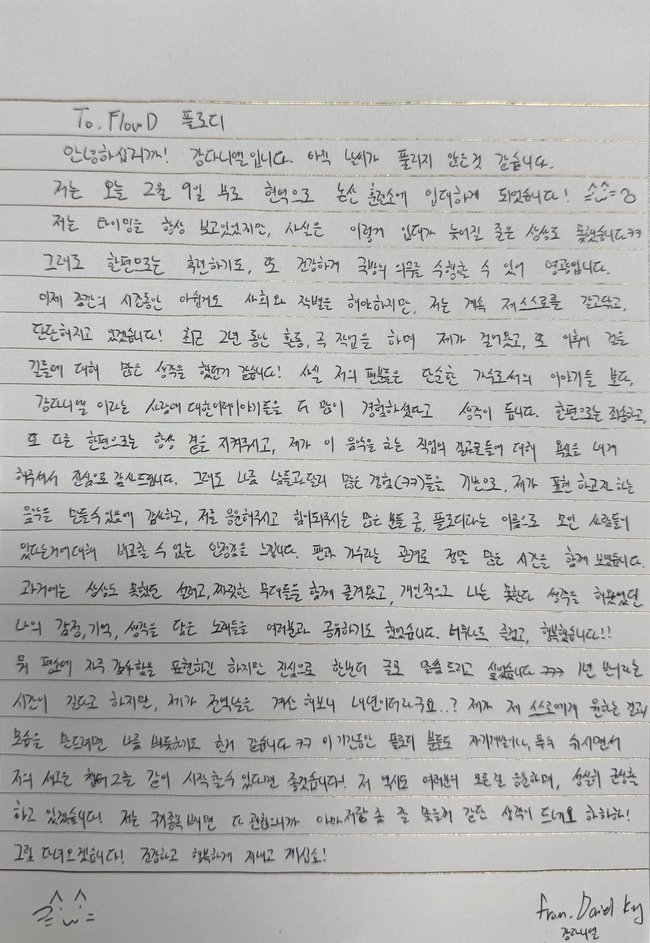 To. FlowD 플로디
안녕하십니까! 강다니엘입니다. 아직 날씨가 풀리지 않은것 같습니다.
저는 오늘 2월 9일 부로 현역으로 논산 훈련소에 입대하게 되었습니다!
저는 타이밍을 항상 보고있었지만, 사실은 이렇게 입대가 늦어질 줄은 상상도 못했습니다ㅋㅋ
그래도 한편으로는 후련하기도, 또 건강하게 국방의 의무를 수행할 수 있어 영광입니다.
이제 잠깐의 시간동안 아쉽게도 사회와 작별을 해야하지만, 저는 계속 제 스스로를 갈고닦고,
단단해지고 있겠습니다! 최근 2년 동안 활동, 곡 작업을 하며 제가 걸어왔고, 또 이후에 걸을
길들에 대해 많은 생각을 했던거 같습니다! 사실 저의 팬분들은 단순한 가수로서의 이야기들 보다,
강다니엘 이라는 사람에 대한 이야기들을 더 많이 경험하셨다고 생각이 듭니다. 한편으로는 죄송하고,
또 다른 한편으로는 항상 곁을 지켜주시고, 제가 이 음악을 하는 직업의 결과물들에 대해 응원을 내게
해주셔서 진심으로 감사드립니다. 그래도 나름 남들과 달리 많은 경험(ㅋㅋ)들을 기반으로, 제가 표현하고자 하는
음악을 만들 수 있음에 감사하고, 저를 응원해주시고 힘이 되주시는 많은 분들 중, 플로디라는 이름으로 모인 사람들이
있다는거에 대해 비교할 수 없는 안정감을 느낍니다. 팬과 가수라는 관계로 정말 많은 시간을 함께 보냈습니다.
과거에는 상상도 못했던 설레고, 짜릿한 무대들을 함께 즐겨왔고, 개인적으로 나는 못한다 생각을 해왔었던
나의 감정, 기억, 생각을 담은 노래들을 여러분과 공유하기도 했었습니다. 너무나도 즐겁고, 행복했습니다!!
뭐 평소에 자주 감사함을 표현하긴 하지만 진심으로 한번더 글로 말씀드리고 싶었습니다 ㅋㅋㅋ 1년 반이라는
시간이 길다고 하지만, 제가 전역날을 계산 해보니 내년이더라구요..? 제가 저 스스로에게 원하는 결과
모습을 만드려면 나름 빠듯하기도 한거 같습니다ㅋㅋ 이 기간동안 플로디 분들도 자기개발이나, 푹 쉬시면서
저의 새로운 챕터 2를 같이 시작할수 있다면 좋겠습니다! 저 역시도 여러분의 모든걸 응원하며, 성실히 군생활
하고 있겠습니다! 저는 국가 빼면 다 관심
그럼 다녀오겠습니다! 건강하고 행복하게 지내고 계십쇼!
from. Daniel. K
강다니엘